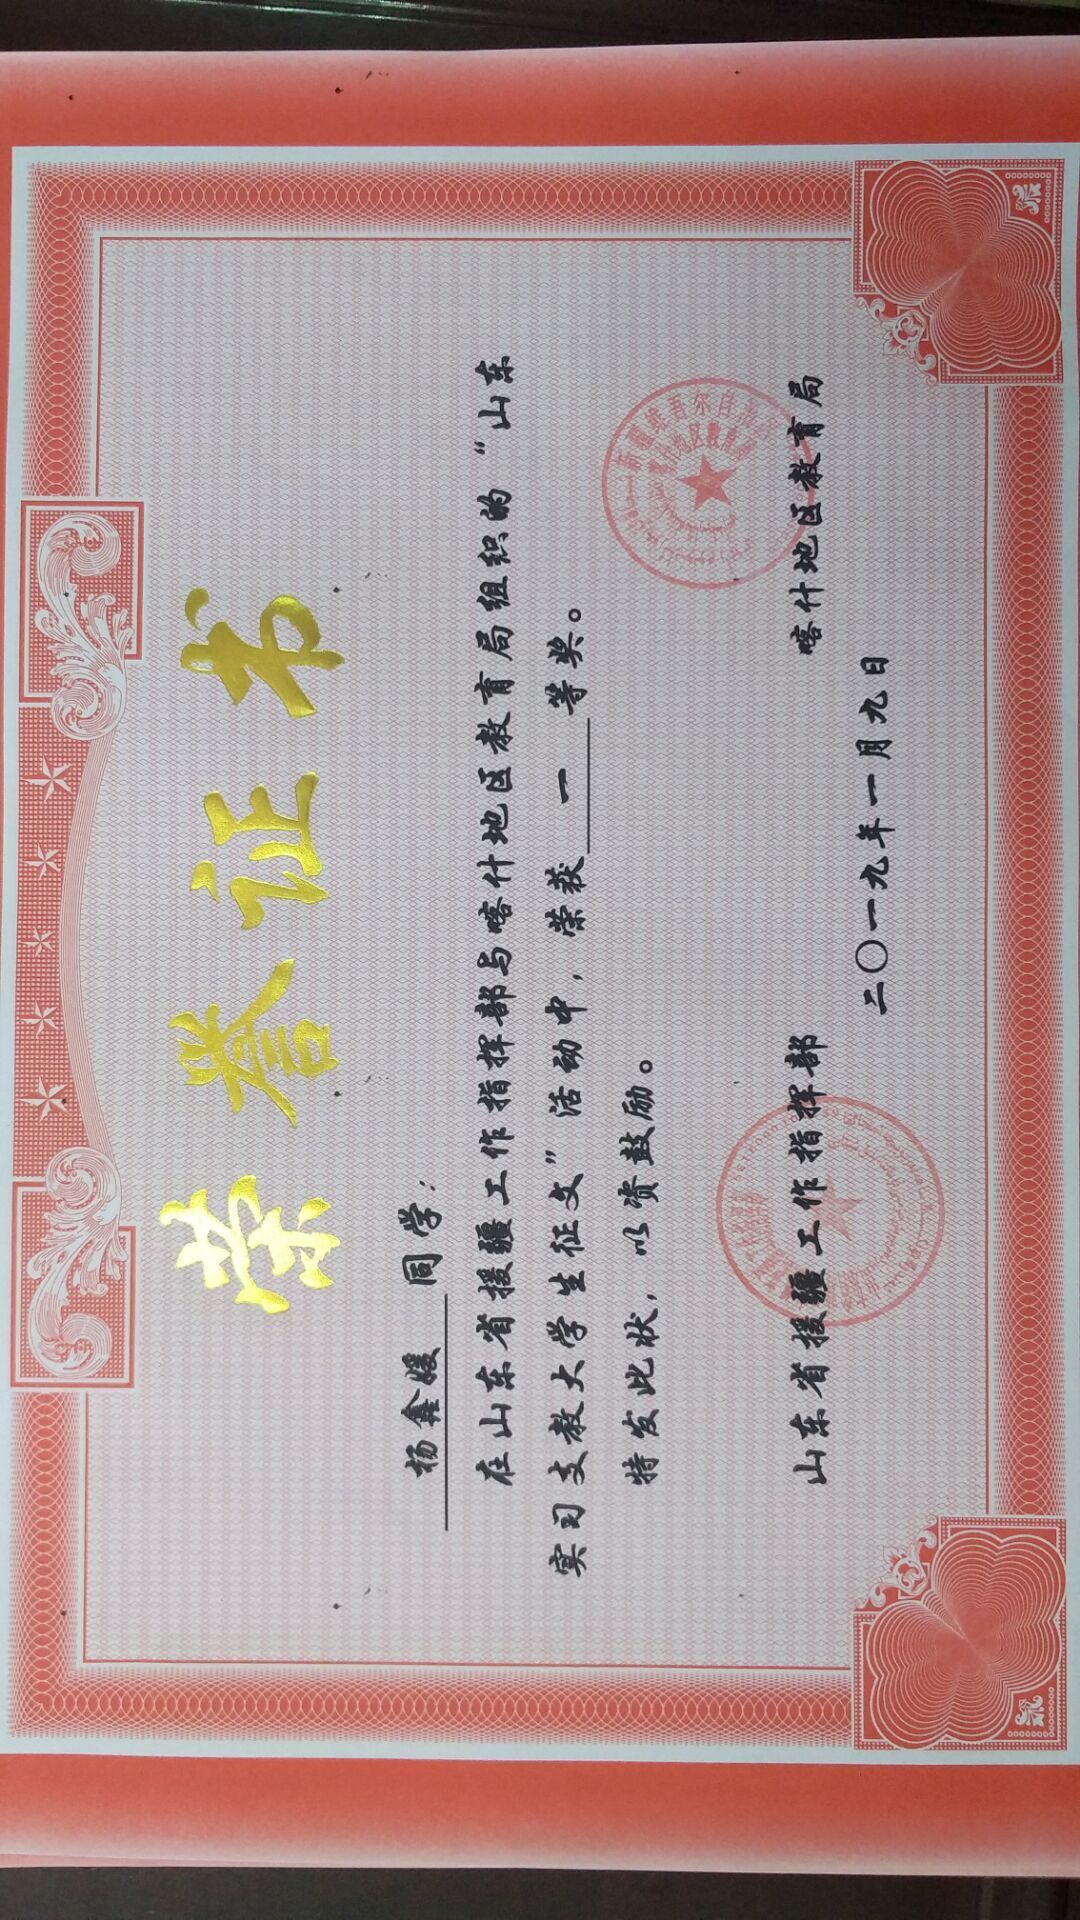 荣誉证书
杨鑫媛 同学：
在山东省援疆工作指挥部与喀什地区教育局组织的“山东
实习支教大学生征文”活动中，荣获 一 等奖。
特发此状，以资鼓励。
山东省援疆工作指挥部 喀什地区教育局
二〇一九年一月九日